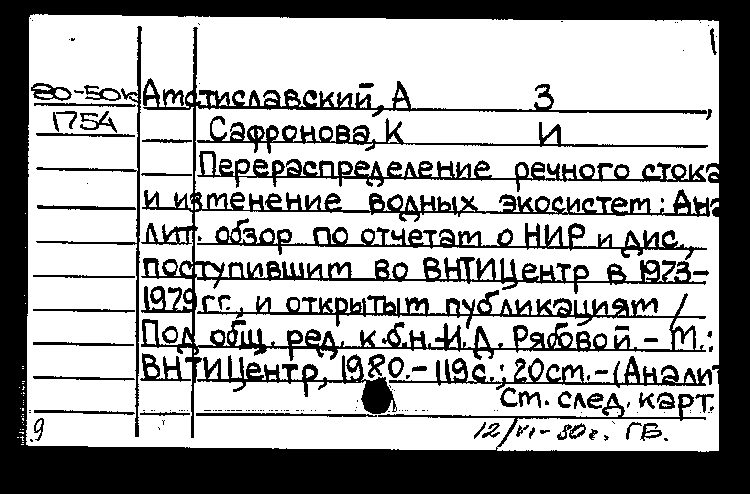 80-50к Амстиславский, А З,
1754 Сафронова, К И
Перераспределение речного стока
и изменение водных экосистем: Ана
лит. обзор по отчетам о НИР и дис.,
поступившим во ВНТИЦентр в 1973-
1979 гг., и открытым публикациям /
Под общ. ред. к.б.н. И.Д. Рябовой. - М.:
ВНТИЦентр, 1980. - 119 с.; 20 см. - (Аналит
См. след. карт.
9 12/VI-80 г. ГБ.